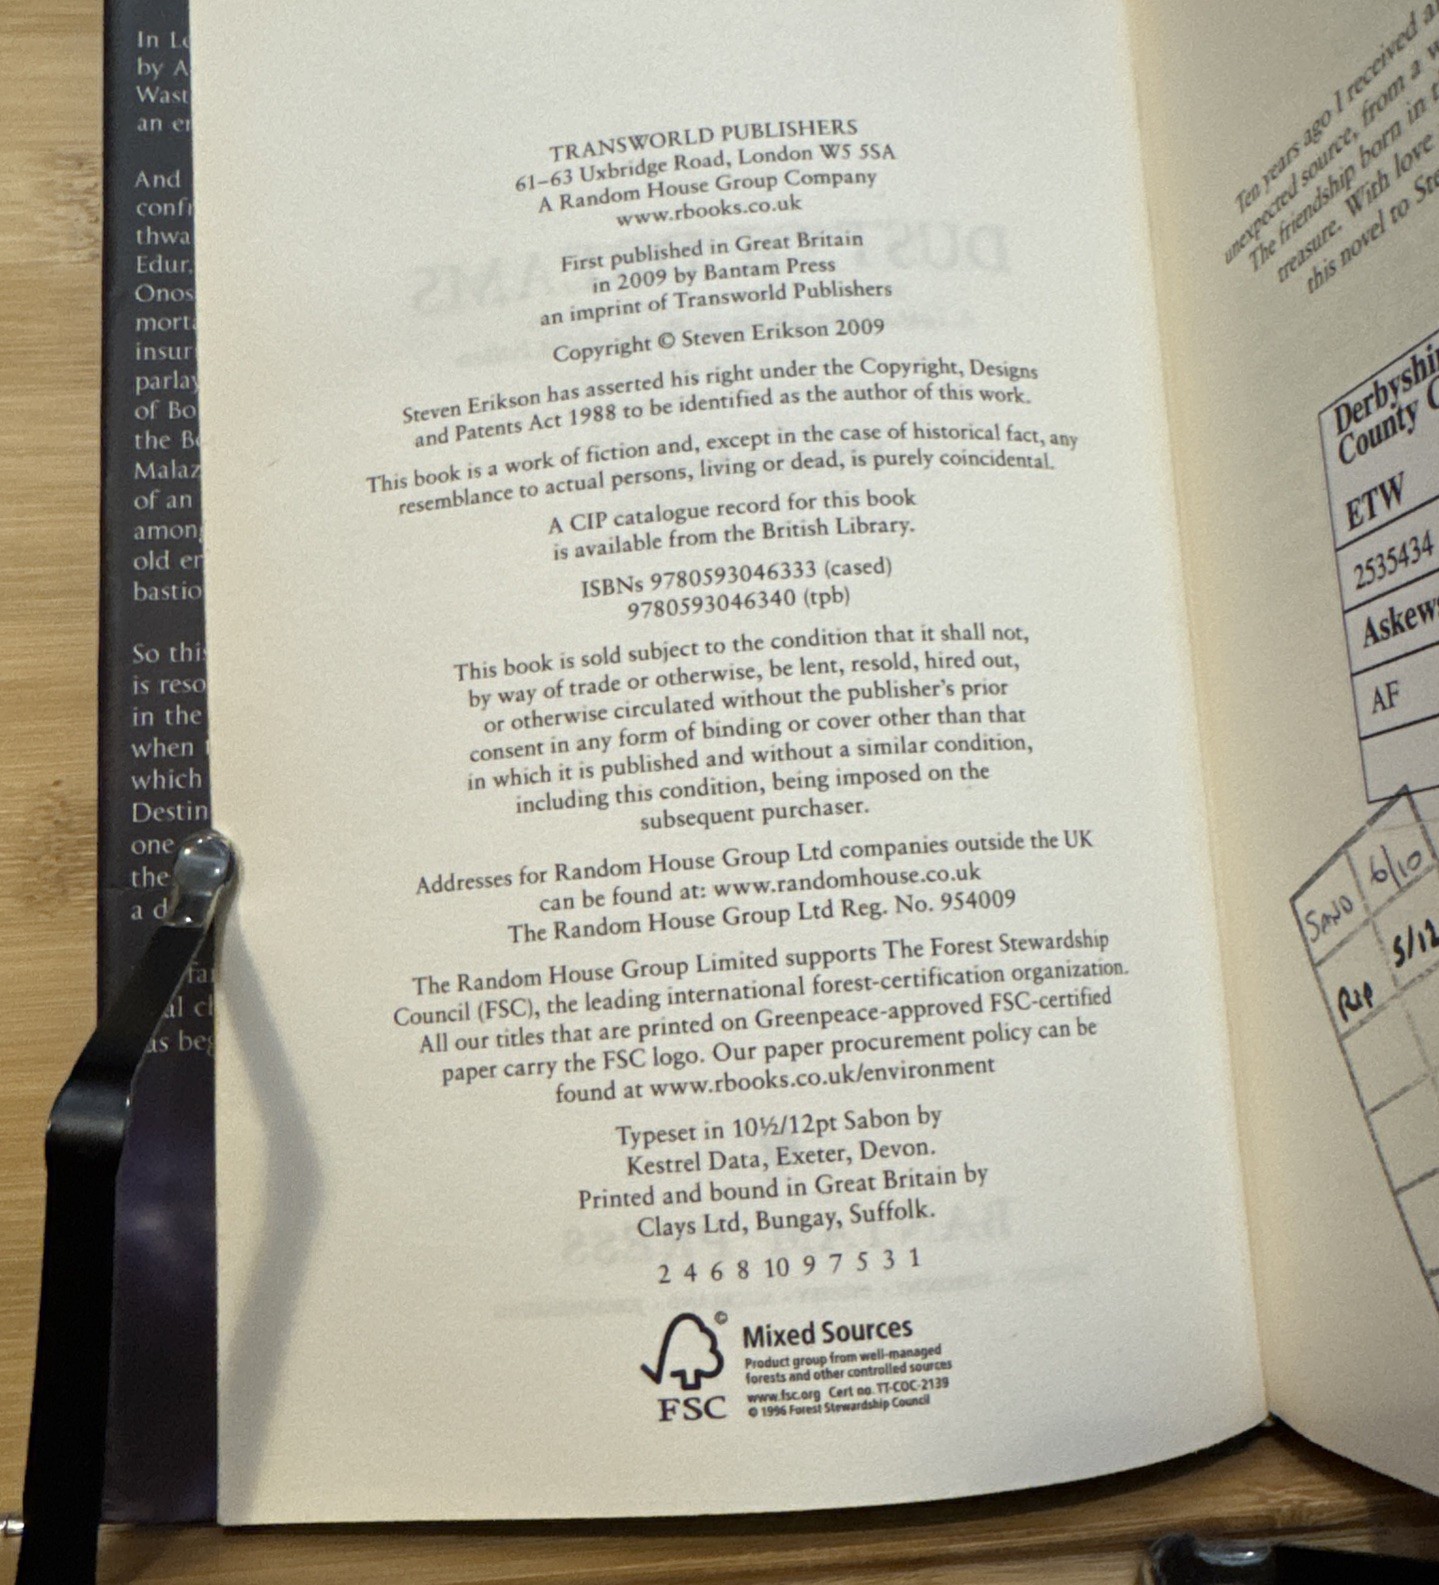 In
by A
Wast
an
And
confr
thwa
Edur,
Onos
mort
insur
parlay
of Bo
the
Malaz
of an
among
old
bastio
So this
is reso
in the
when
which
Destin
one
the
a
as beg
TRANSWORLD PUBLISHERS
61–63 Uxbridge Road, London W5 5SA
A Random House Group Company
www.rbooks.co.uk
First published in Great Britain
in 2009 by Bantam Press
an imprint of Transworld Publishers
Copyright © Steven Erikson 2009
Steven Erikson has asserted his right under the Copyright, Designs
and Patents Act 1988 to be identified as the author of this work.
This book is a work of fiction and, except in the case of historical fact, any
resemblance to actual persons, living or dead, is purely coincidental.
A CIP catalogue record for this book
is available from the British Library.
ISBNs 9780593046333 (cased)
9780593046340 (tpb)
This book is sold subject to the condition that it shall not,
by way of trade or otherwise, be lent, resold, hired out,
or otherwise circulated without the publisher's prior
consent in any form of binding or cover other than that
in which it is published and without a similar condition,
including this condition, being imposed on the
subsequent purchaser.
Addresses for Random House Group Ltd companies outside the UK
can be found at: www.randomhouse.co.uk
The Random House Group Ltd Reg. No. 954009
The Random House Group Limited supports The Forest Stewardship
Council (FSC), the leading international forest-certification organization.
All our titles that are printed on Greenpeace-approved FSC-certified
paper carry the FSC logo. Our paper procurement policy can be
found at www.rbooks.co.uk/environment
Typeset in 10½/12pt Sabon by
Kestrel Data, Exeter, Devon.
Printed and bound in Great Britain by
Clays Ltd, Bungay, Suffolk.
2 4 6 8 10 9 7 5 3 1
FSC
Mixed Sources
Product group from well-managed
forests and other controlled sources
www.fsc.org Cert no. TT-COC-2139
© 1996 Forest Stewardship Council
Ten years ago I received a
unexpected source, from a w
The friendship born in t
treasure. With love
this novel to Ste
Derbyshir
County C
ETW
2535434
Askew
AF
6/10
5/12